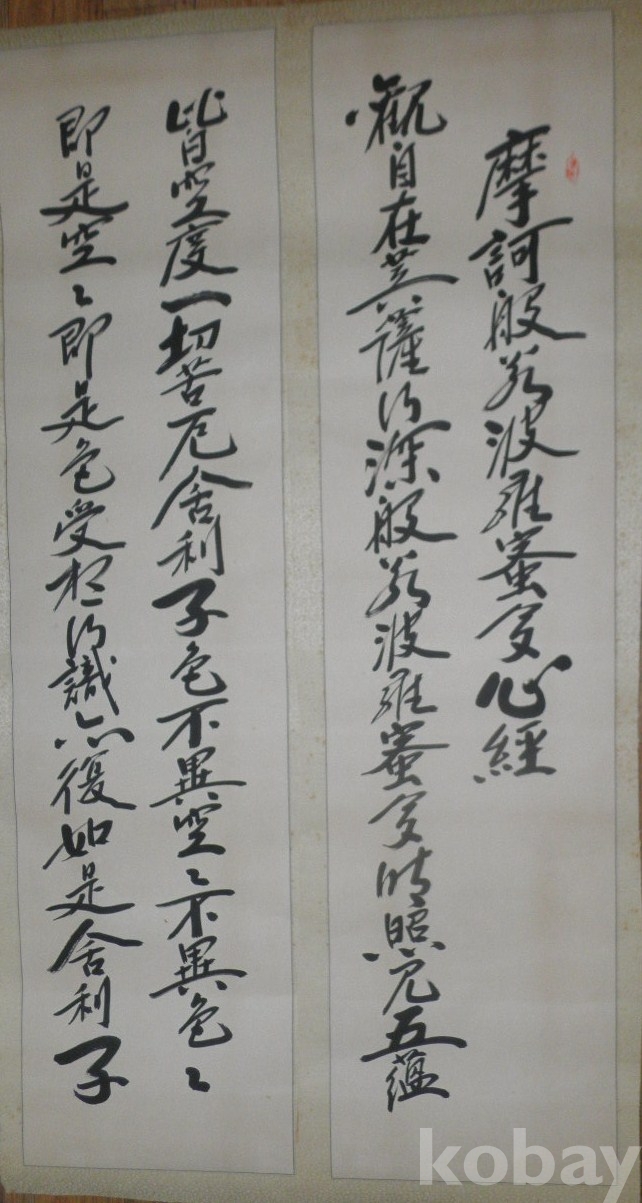 摩訶般若波羅蜜多心經
觀自在菩薩行深般若波羅蜜多時照見五蘊
皆空度一切苦厄舍利子色不異空々不異色々
即是空々即是色受想行識亦復如是舍利子
kobay